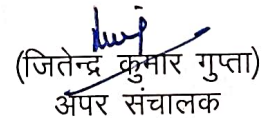 (जितेन्द्र कुमार गुप्ता)
अपर संचालक